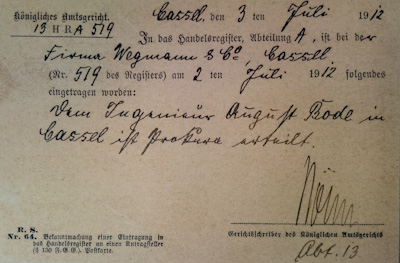 Königliches Amtsgericht.
13 H R A 519
Cassel, den 3 ten Juli 1912
In das Handelsregister, Abteilung A, ist bei der
Firma Wegmann & Co, Cassel
(Nr. 519 des Registers) am 2 ten Juli 1912 folgendes
eingetragen worden:
Dem Ingenieur August Bode in
Cassel ist Prokura erteilt.
Gerichtsschreiber des Königlichen Amtsgerichts
Abt. 13
R. S.
Nr. 64. Bekanntmachung einer Eintragung in
das Handelsregister an einen Antragsteller
(§ 130 F. G. G.). Postkarte.